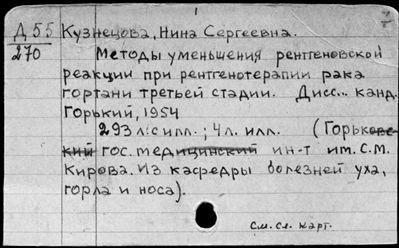 Д 55 Кузнецова, Нина Сергеевна.
270 Методы уменьшения рентгеновской
реакции при рентгенотерапии рака
гортани третьей стадии. Дисс... канд.
Горький, 1954
293 л. с илл.; 4 л. илл. (Горьков-
ский гос. медицинский ин-т им. С.М.
Кирова. Из кафедры болезней уха,
горла и носа).
См. сл. карт.